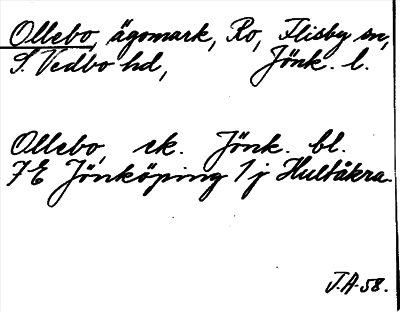 Ollebo, ägomark, Ro, Flisby sn,
S. Vedbo hd, Jönk. l.
Ollebo, ek. Jönk. bl.
7E Jönköping 1j Hultåkra.
J.A. 58.